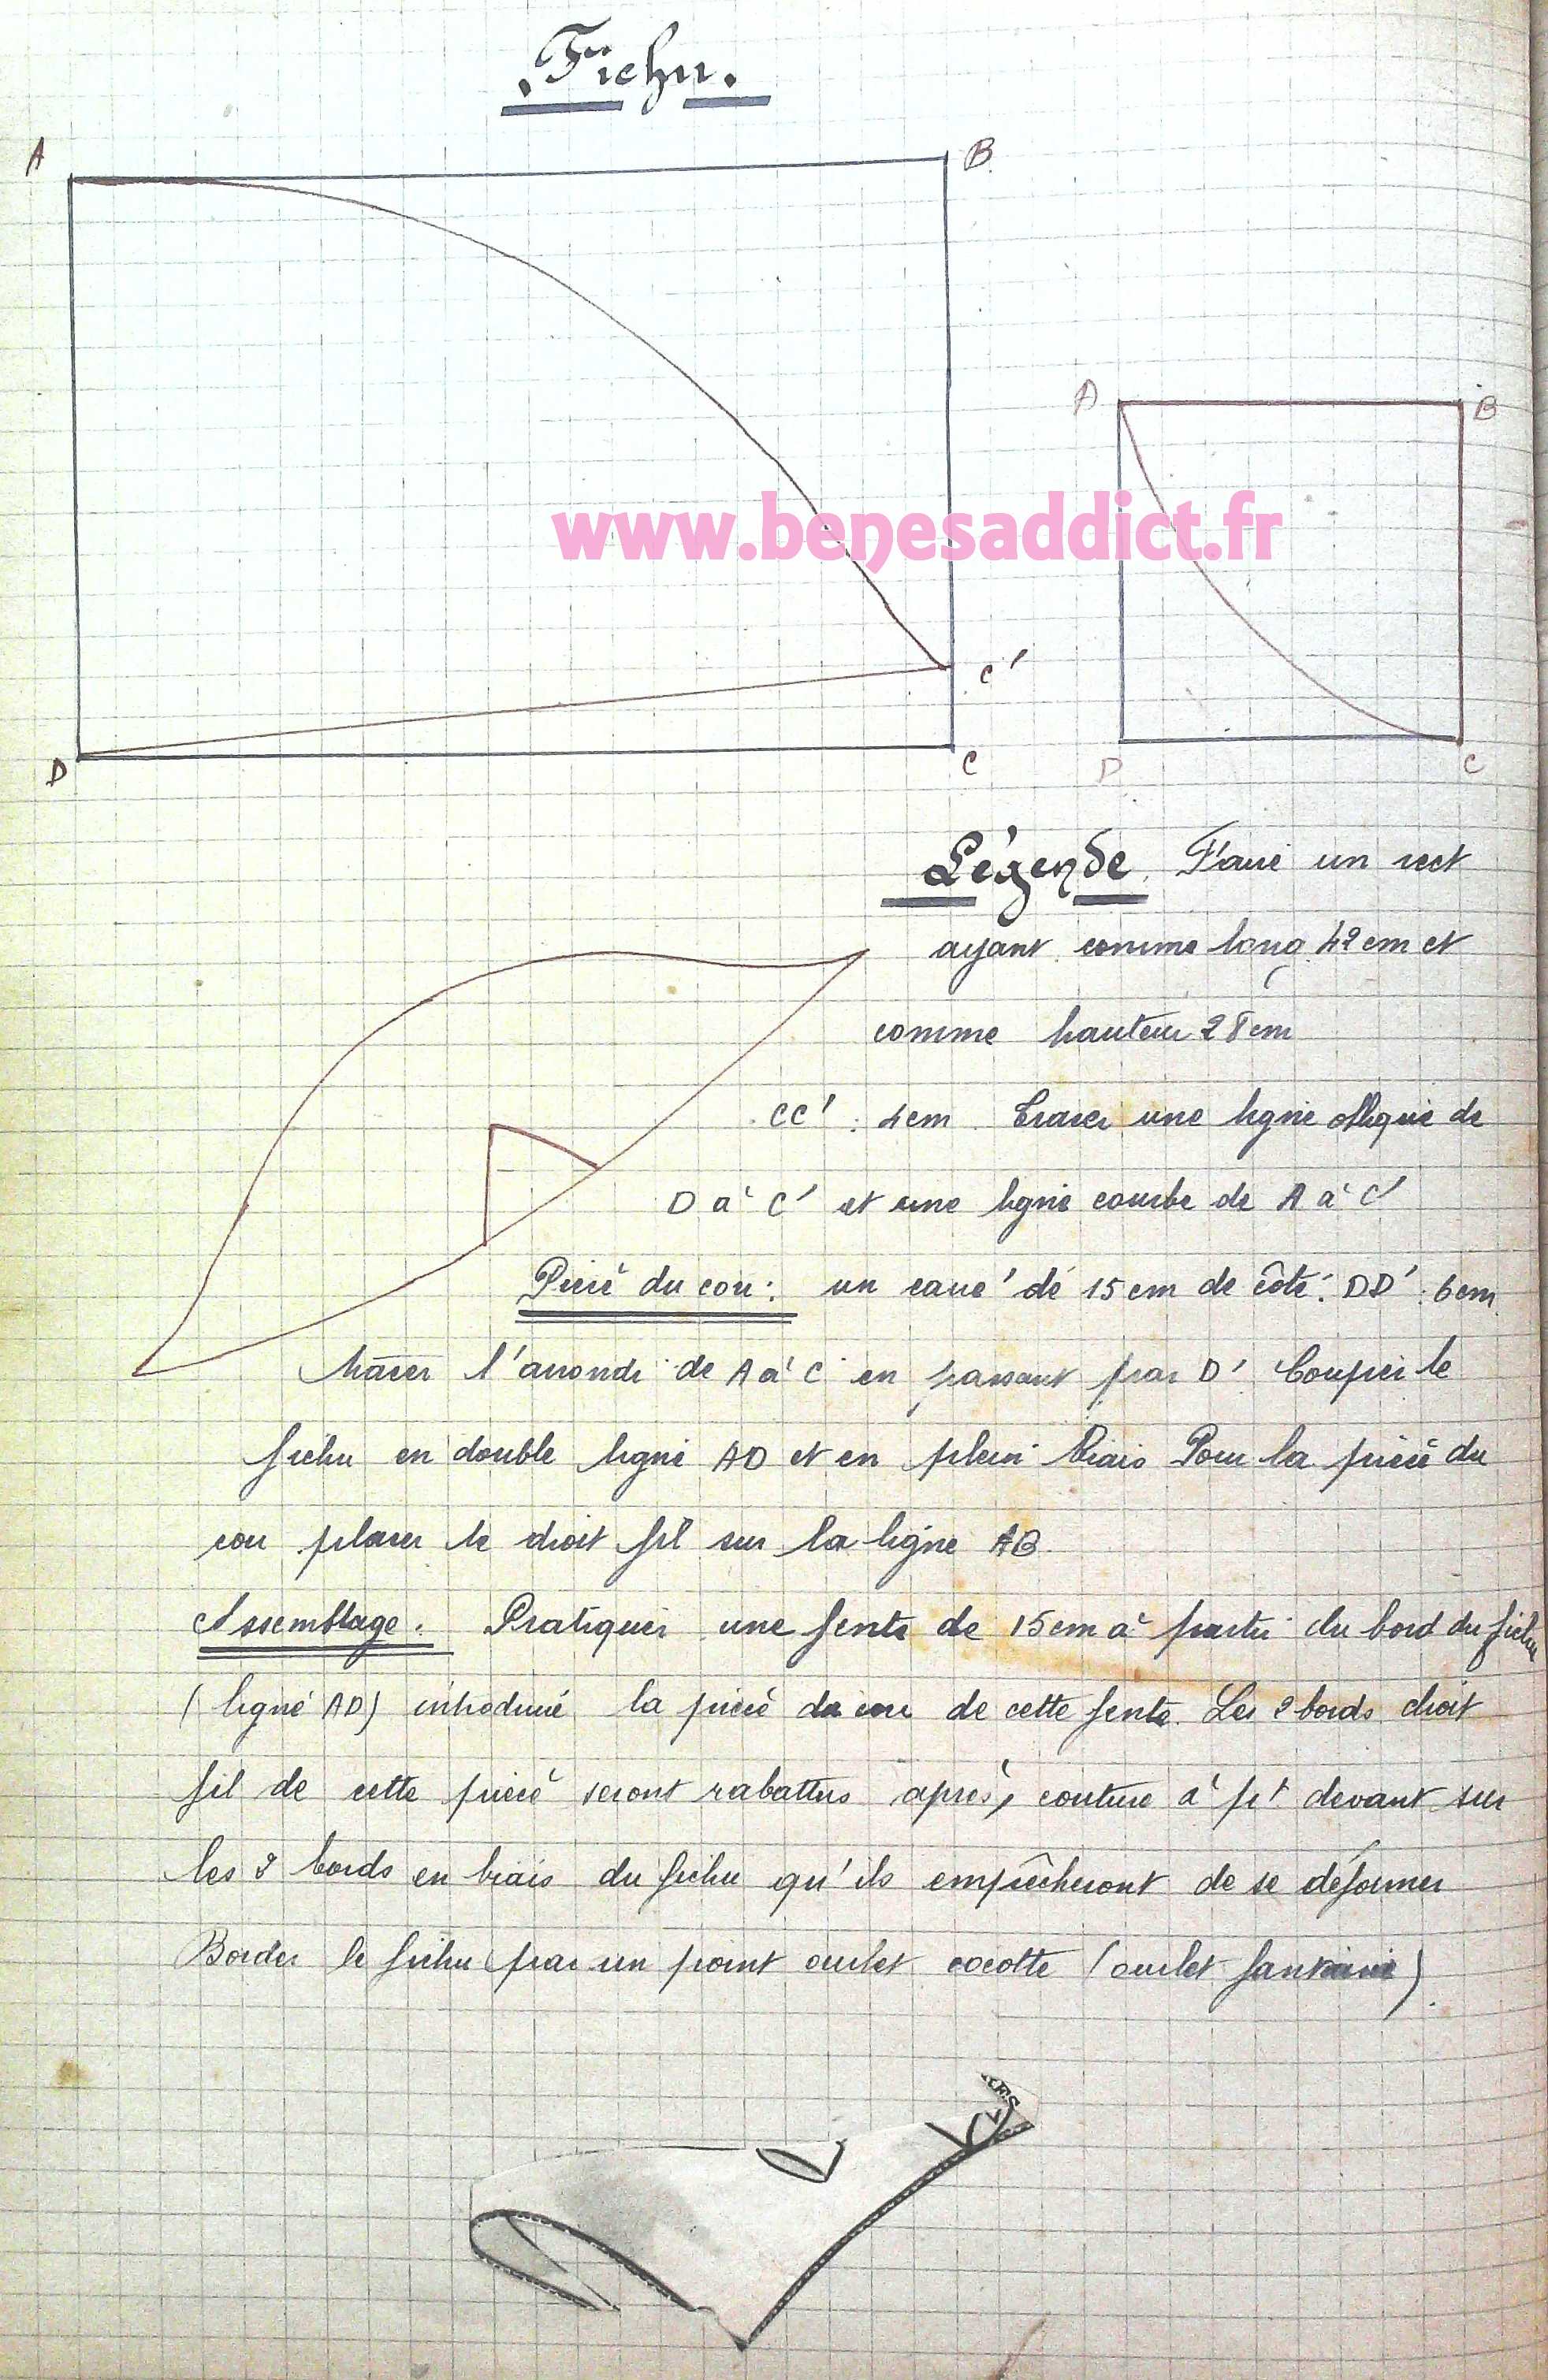 Fichu.
A
B
A
B
www.benesaddict.fr
C'
D
C
D
C
Légende. Faire un rect
ayant comme long. 42 cm et
comme hauteur 28 cm
CC' : 4 cm. Tracer une ligne oblique de
D à C' et une ligne courbe de A à C'
Pièce du cou : un carré de 15 cm de côté. DD' : 6 cm.
tracer l'arrondi de A à C en passant par D' Couper le
fichu en double ligne AD et en plein biais Pour la pièce du
cou placer le droit fil sur la ligne AB.
Assemblage. Pratiquer une fente de 15 cm à partir du bord du fichu
(ligne AD) introduire la pièce du cou de cette fente. Les 2 bords droit
fil de cette pièce seront rabattus après, couture à pt devant sur
les 2 bords en biais du fichu qu'ils empêcheront de se déformer
Border le fichu par un point ourlet cocotte (ourlet fantaisie).
RES